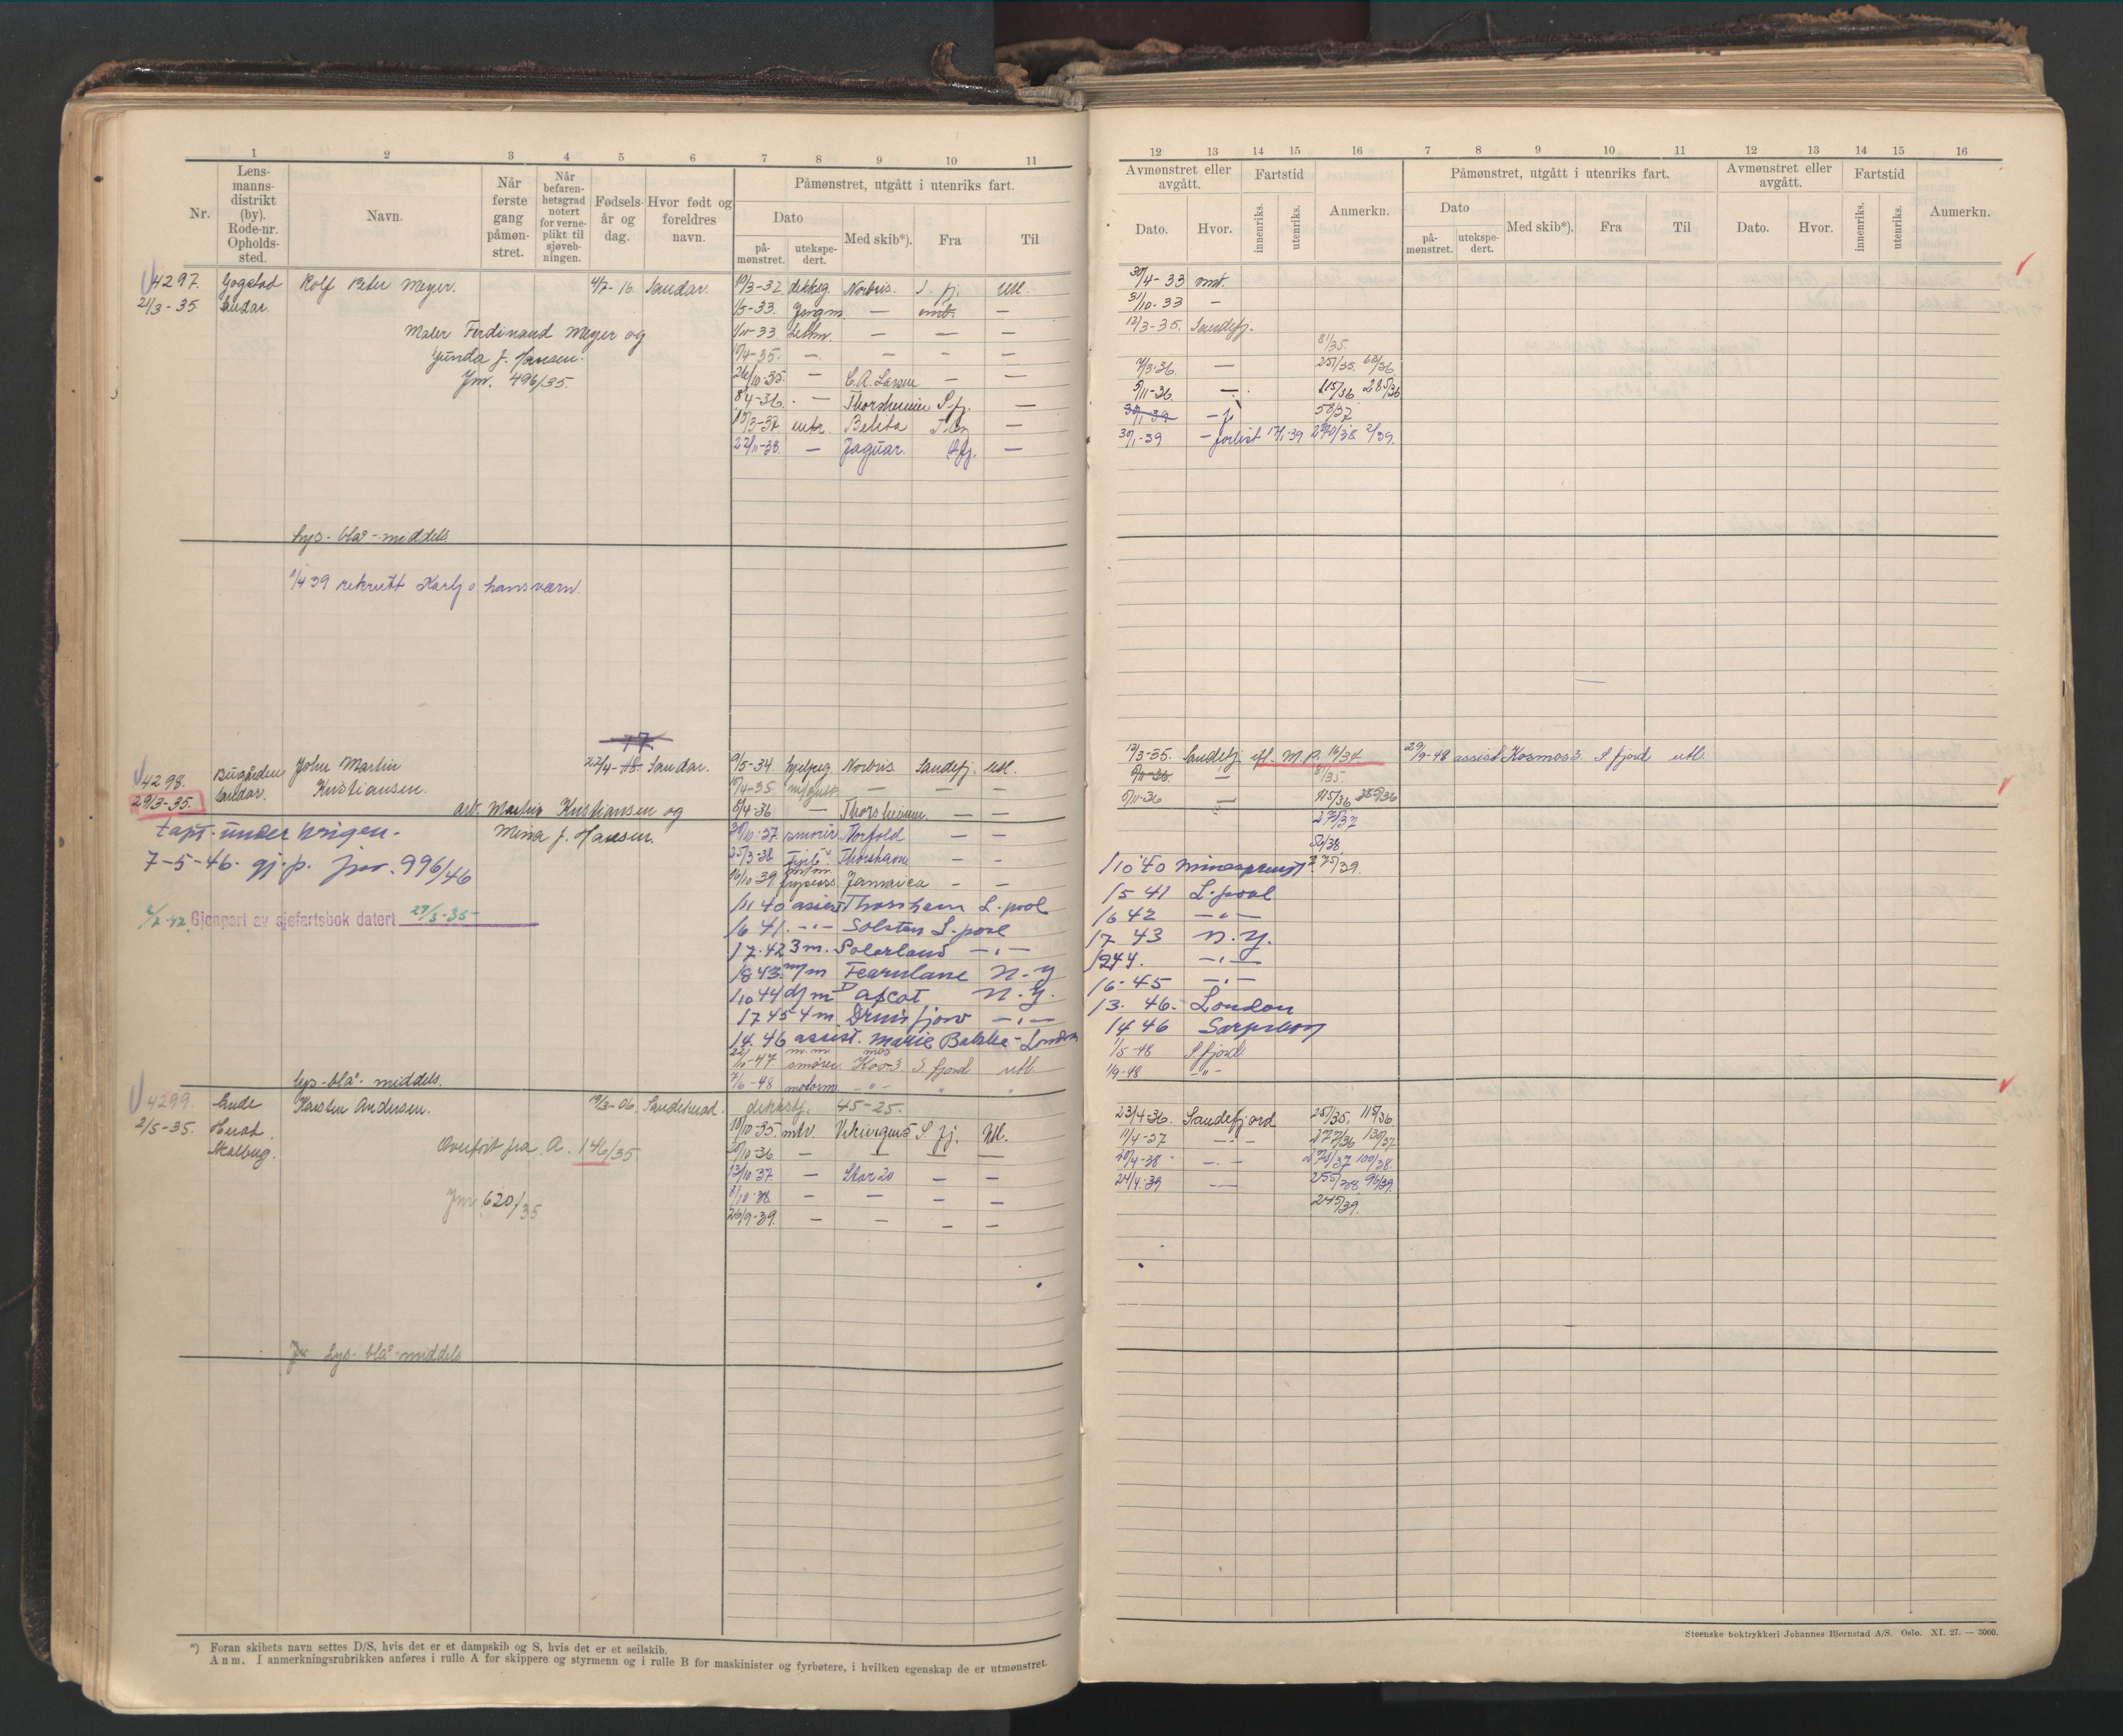 1 2 3 4 5 6 7 8 9 10 11
Nr. Lensmannsdistrikt (by). Rode-nr. Opholdssted. Navn. Når første gang påmønstret. Når befarenhetsgrad notert for verneplikt til sjøvebningen. Fødselsår og dag. Hvor født og foreldres navn. Påmønstret, utgått i utenriks fart.
Dato Med skib*). Fra Til
påmønstret. utekspedert.
4297. Gogstad Rolf Peter Meyer. 4/7-16. Sandar. 19/3-32 dekksg. Norbris. S. fj. Utl.
21/3-35 Sandar. 1/5-33. Jungm. — omt. —
Maler Ferdinand Meyer og 1/11-33 — — —
Gunda J. Hansen. 10/4-35. — — — —
Jnr. 496/35. 26/10-35. — C. A. Larsen — —
8/4-36. — Thorshammer S. fj. —
15/3-37 Belita —
22/11-38. — Jaguar. —
Lys-blå-middels.
1/4 39 rekrutt Karljohansværn.
17
4298. Bugården John Martin 22/4-18. Sandar. 9/5-34 Norbris Sandefj. Utl.
29/3-35. Sandar. Kristiansen. 10/4-35 — — —
arb. Martin Kristiansen og 8/4-36 — Thorshammer — —
tapt under krigen. Mina J. Hansen. 30/10-37 smører Norfold — —
7-5-46. gj.p. jnr. 996/46 25/3-38 Thorshavn — —
16/10 39 Jamaica — —
1/11 40 assist Thorshavn L. pool
2/2-42. Gjenpart av sjøfartsbok datert 29/3-35- 1/6 41. —"— Solsten L. pool
1/7.42 3 m. Solørland —"—
1/8 43. m/m Fearnlane N-Y
1/10 44 d/m Dascot N.Y.
1/7 45 4 m Drafnfjord —"—
1/4. 46 assist. Marie Bakke - London
22/10-47 smører Kosmos 3 S. fjord utl.
7/6-48 motorm. —"— " "
Lys-blå-middels.
4299. Ende Karsten Andersen. 19/3-06. Sandeherad. dekksbj. 45-25.
2/5-35. Herad. 18/10-35. mtr. Vikingen 5 S. fj. Utl.
Skolbug. Overført fra A. 146/35 20/10-36 — — — —
13/10 37 — Star 20 — —
Jnr. 620/35 8/10-38 — — — —
26/9-39. — — — —
Lys-blå-middels
*) Foran skibets navn settes D/S, hvis det er et dampskib og S, hvis det er et seilskib.
Anm. I anmerkningsrubrikken anføres i rulle A for skippere og styrmenn og i rulle B for maskinister og fyrbøtere, i hvilken egenskap de er utmønstret.
12 13 14 15 16 7 8 9 10 11 12 13 14 15 16
Avmønstret eller avgått. Fartstid Anmerkn. Påmønstret, utgått i utenriks fart. Avmønstret eller avgått. Fartstid Anmerkn.
Dato. Hvor. innenriks. utenriks. Dato påmønstret. utekspedert. Med skib*). Fra Til Dato. Hvor. innenriks. utenriks.
30/4-33 omt.
31/10-33 —
12/3-35. Sandefj.
81/35.
7/3-36. — 251/35. 62/36
5/11-36. — 115/36 285/36
30/1-39 58/37
30/1-39 — forlist 17/1-39 270/38 2/39.
12/3-35. Sandefj. efl. M.P. 16/34 29/9-48 assist. Kosmos 3 S fjord utl.
5/11-36 — 81/35.
5/11-36 — 115/36 285/36
275/37
52/38
1/10 40 Minesprengt. 275/39.
1/5 41 L. pool
1/6 42 —"—
1/7 43 N.Y.
1/2 44. —"—
1/6-45 —"—
1/3. 46. London
1/4 46 Sarpsborg
1/5-48 S. fjord
1/9-48 —"—
23/4-36. Sandefjord 251/35, 115/36
11/4-37 —"— 277/36 130/37
20/4-38 —"— 271/37 100/38.
24/4-39 —"— 255/38 96/39.
245/39.
Steenske boktrykkeri Johannes Bjørnstad A/S. Oslo. XI. 27. — 3000.